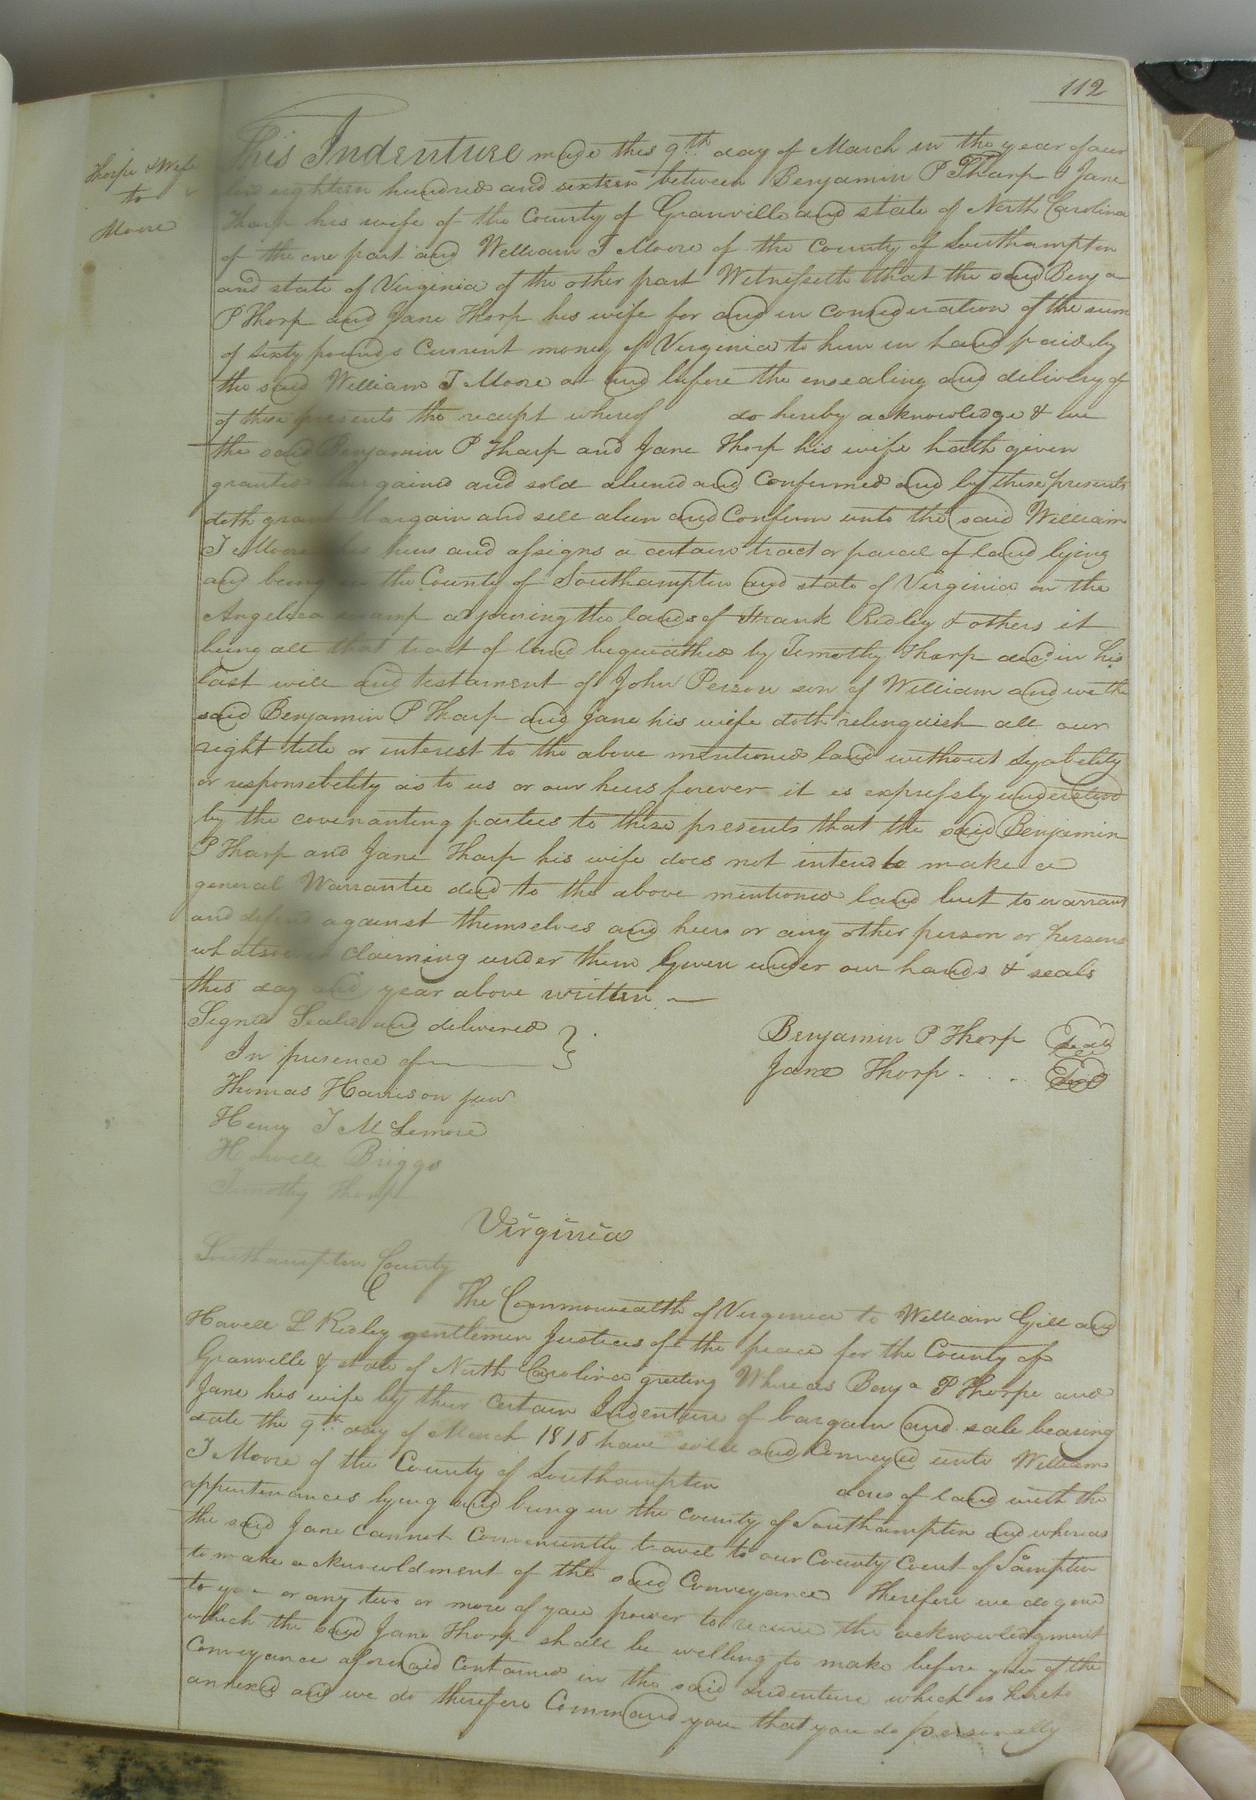 112
Thorpe & Wife
to
Moore
This Indenture made this 9th day of March in the year of our
Lord eighteen hundred and sixteen between Benjamin P Tharp & Jane
Tharp his wife of the County of Granville and state of North Carolina
of the one part and William T Moore of the County of Southampton
and state of Virginia of the other part Witnesseth that the said Benja
P Thorp and Jane Thorp his wife for and in consideration of the sum
of sixty pounds Current money of Virginia to him in hand paid by
the said William T Moore at and before the ensealing and delivery of
of these presents the receipt whereof do hereby acknowledge & we
the said Benjamin P Tharp and Jane Thorp his wife hath given
granted bargained and sold aliened and Confirmed and by these presents
doth grant bargain and sell alien and Confirm unto the said William
T Moore his heirs and assigns a certain tract or parcel of land lying
and being in the County of Southampton and state of Virginia on the
Angelica swamp adjoining the lands of Frank Ridley & others it
being all that tract of land bequeathed by Timothy Tharp decd in his
last will and testament of John Person son of William and we the
said Benjamin P Tharp and Jane his wife doth relinquish all our
right title or interest to the above mentioned land without lyability
or responsebility as to us or our heirs forever it is expressly understood
by the covenanting parties to these presents that the said Benjamin
P Tharp and Jane Tharp his wife does not intend to make a
general Warrantee deed to the above mentioned land but to warrant
and defend against themselves and heirs or any other person or persons
whatsoever claiming under them Given under our hands & seals
this day and year above written
Signed Sealed and delivered
In presence of
Benjamin P Thorp Seal
Jane Thorp . . . Seal
Thomas Harrison junr
Henry T McLemore
Howell Briggs
Timothy Thorp
Virginia
Southampton County
The Commonwealth of Virginia to William Gill and
Howell L Ridley gentlemen Justices of the peace for the County of
Granville & state of North Carolina greeting Whereas Benja P Thorpe and
Jane his wife by their certain Indenture of bargain and sale bearing
date the 9th day of March 1816 have sold and Conveyed unto William
T Moore of the County of Southampton acres of land with the
appurtenances lying and being in the County of Southampton and whereas
the said Jane cannot Conveniently travel to our County Court of Sampton
to make acknowldment of the said Conveyance Therefore we do give
to you or any two or more of you power to receive the acknowledgment
which the said Jane Thorp shall be willing to make before you of the
Conveyance aforesaid Contained in the said Indenture which is hereto
annexed and we do therefore Command you that you do personally